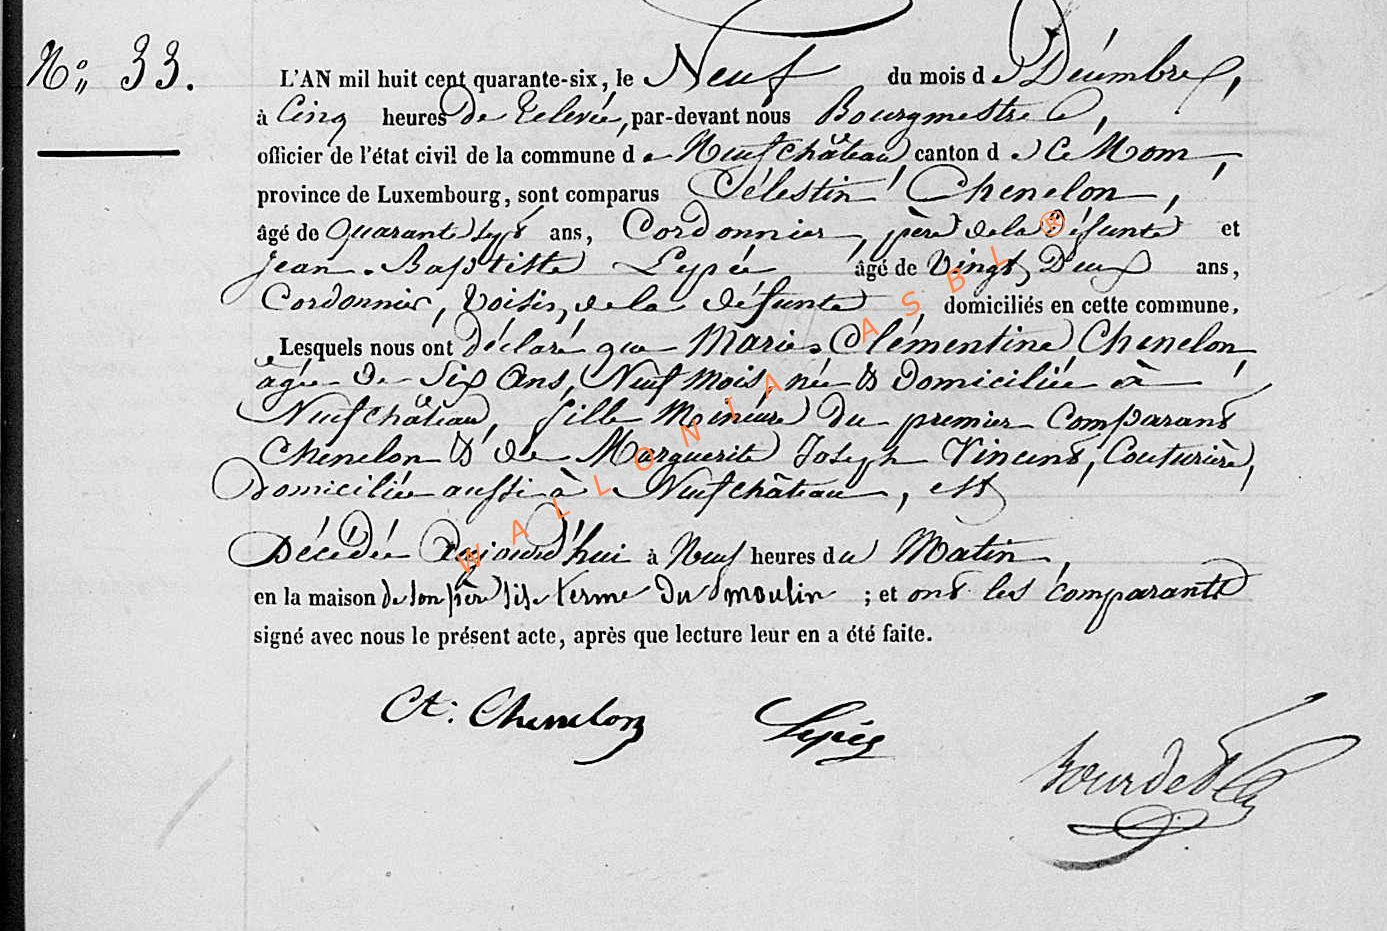 N° 33.
L'AN mil huit cent quarante-six, le Neuf du mois de Décembre,
à Cinq heures de relevée, par-devant nous Bourgmestre,
officier de l'état civil de la commune de Neufchâteau, canton de ce Nom,
province de Luxembourg, sont comparus Célestin Chenelon,
âgé de quarante sept ans, Cordonnier, père de la défunte et
Jean-Baptiste Lepée âgé de Vingt Deux ans,
Cordonnier, Voisin de la défunte domiciliés en cette commune.
Lesquels nous ont déclaré que Marie Clémentine Chenelon,
âgée de Six Ans, Neuf mois, née & domiciliée à
Neufchâteau, fille Mineure du premier Comparant
Chenelon & de Marguerite Joseph Vincent, Couturière,
Domiciliée aussi à Neufchâteau, est
Décédée aujourd'hui à Neuf heures du Matin,
en la maison de son père sise terme du moulin ; et ont les comparants
signé avec nous le présent acte, après que lecture leur en a été faite.
Ct. Chenelon Lepée
WALLONIA ASBL ®